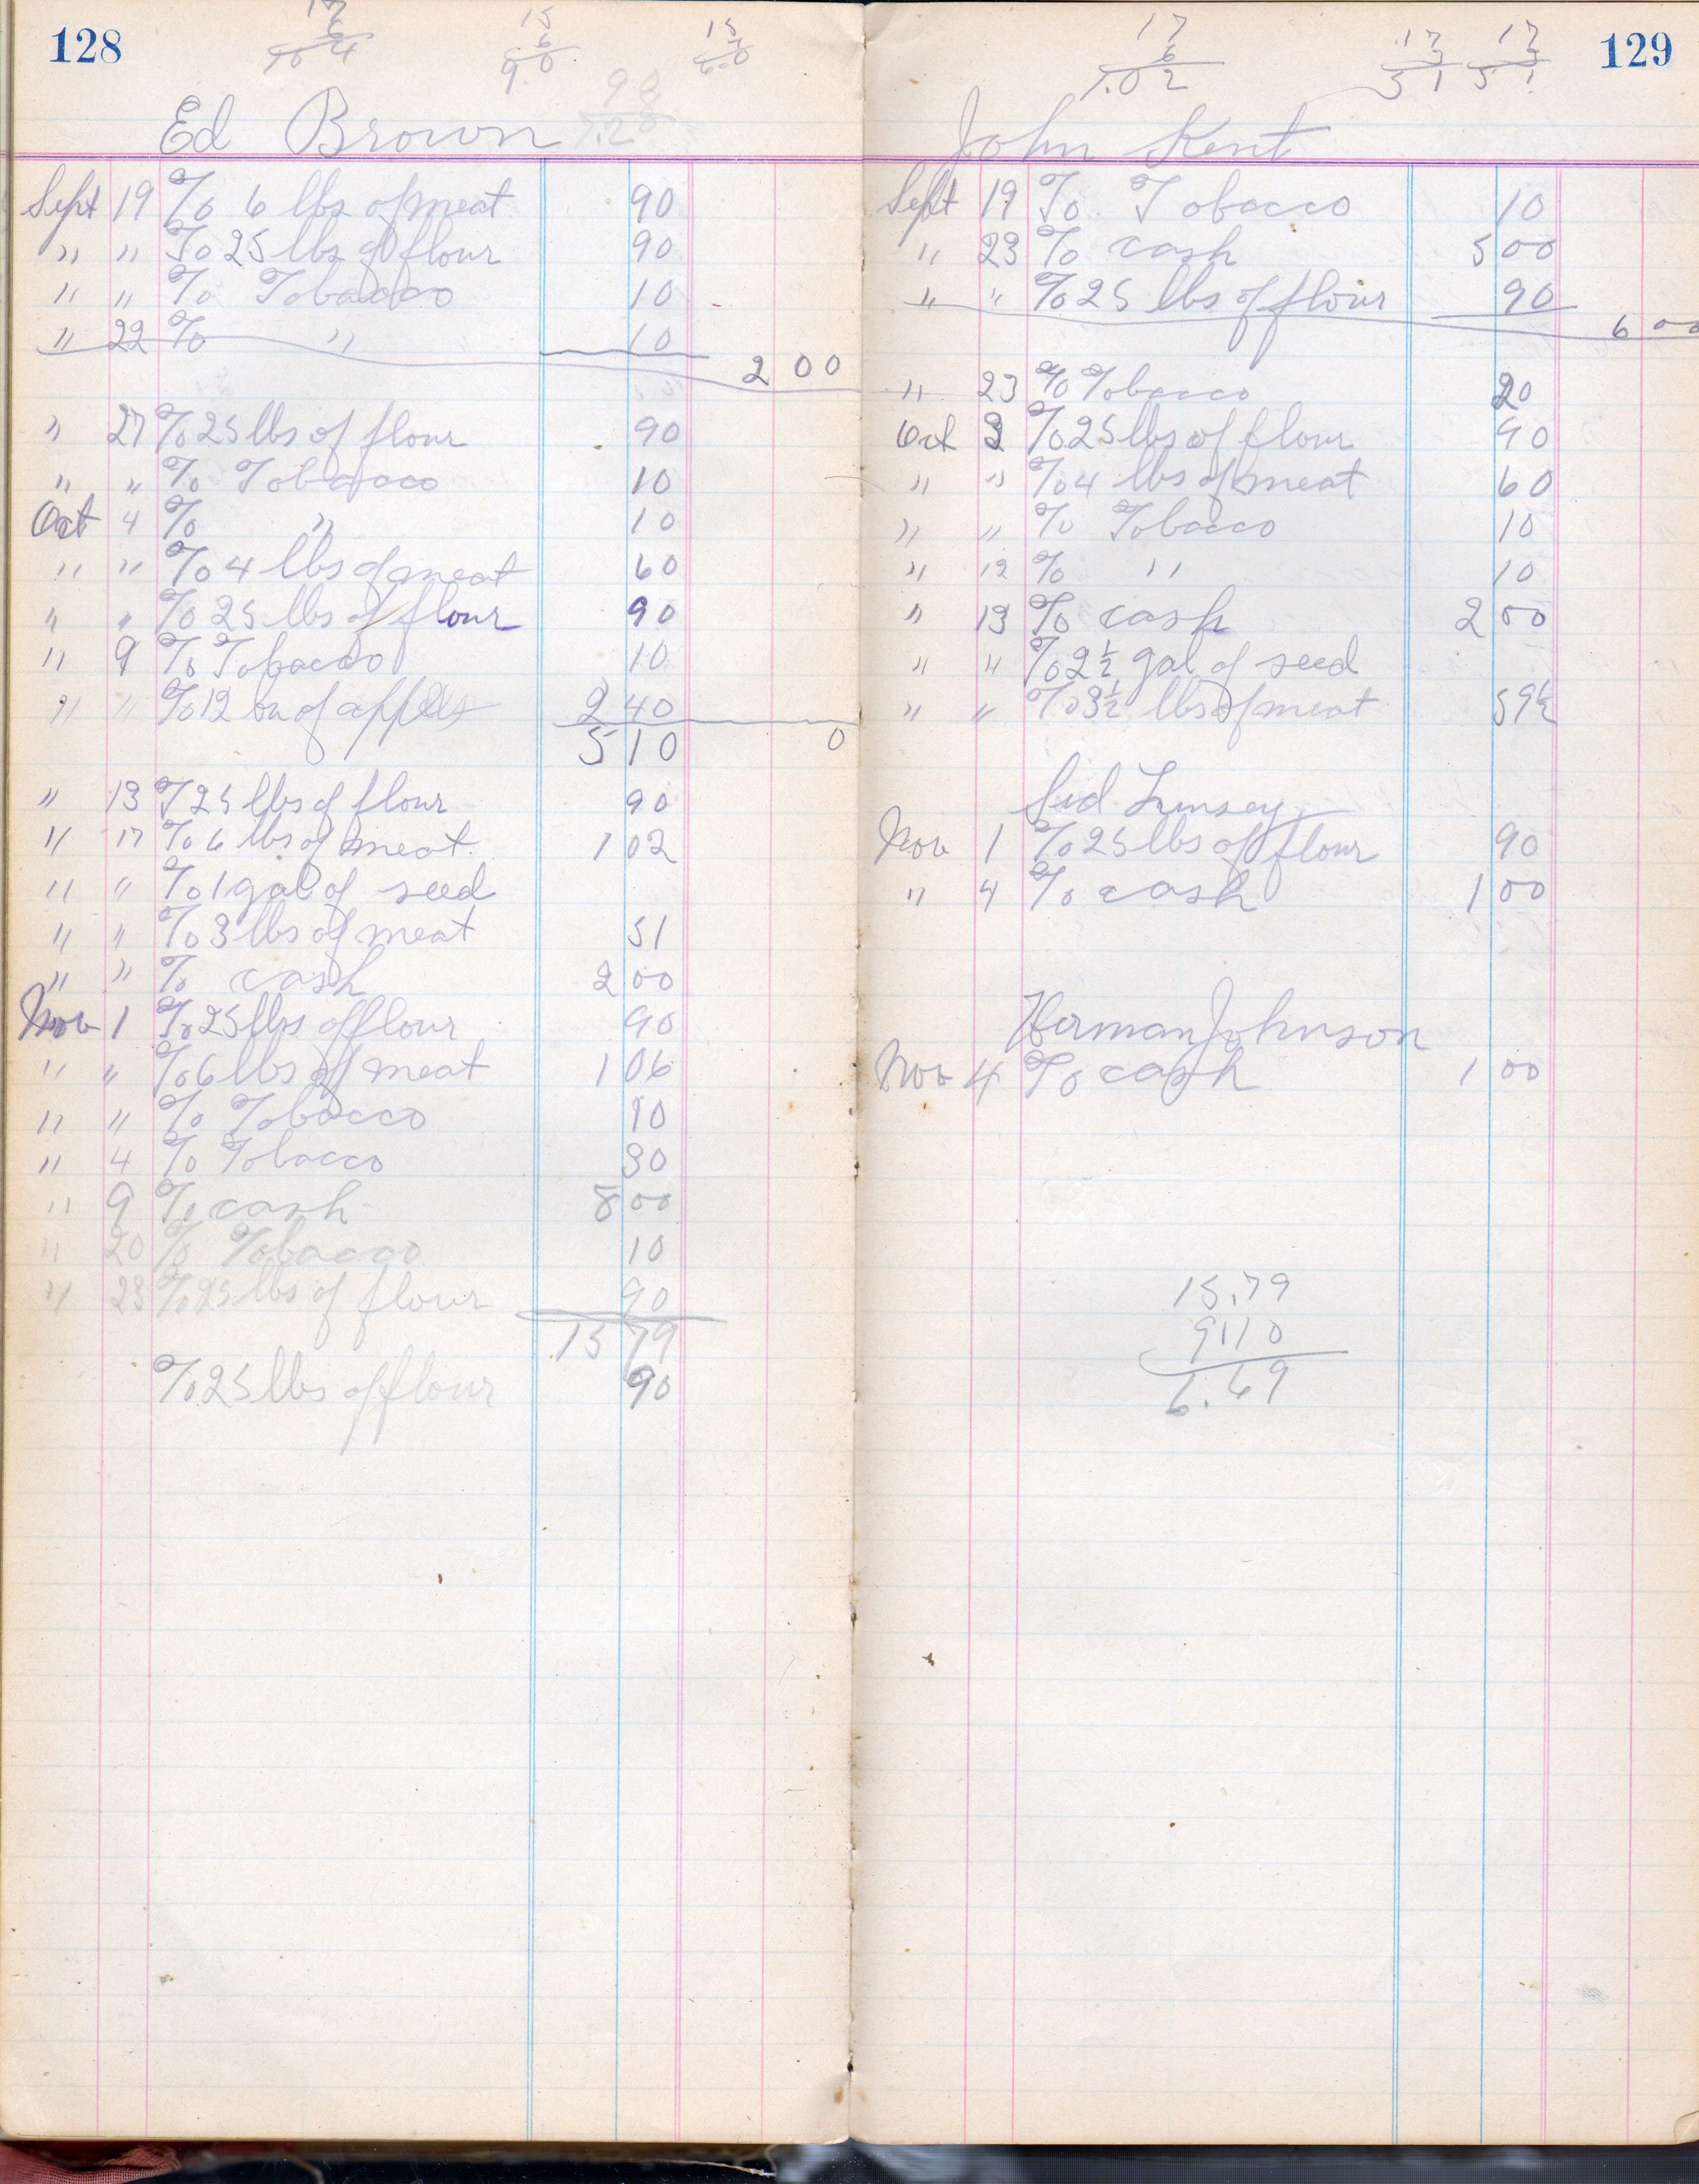 128
17
6
15
6
9.0
15
4
6.0
98
8
7.28
Ed Brown
Sept 19 To 6 lbs of meat 90
" " To 25 lbs of flour 90
" " To Tobacco 10
" 22 To " 10
2 00
" 27 To 25 lbs of flour 90
" " To Tobacco 10
Oct 4 To " 10
" " To 4 lbs of meat 60
" " To 25 lbs of flour 90
" 9 To Tobacco 10
" " To 12 bu of apples 2 40
5 10 0
" 13 T 25 lbs of flour 90
" 17 To 6 lbs of meat 1 02
" " To 1 gal of seed
" " To 3 lbs of meat 51
" " To cash 2 00
Nov 1 To 25 lbs of flour 90
" " To 6 lbs of meat 1 06
" " To Tobacco 10
" 4 To Tobacco 30
" 9 To cash 8 00
" 20 To Tobacco 10
" 23 To 25 lbs of flour 90
15 79
To 25 lbs of flour 90
129
17
6
1.02
17
3
51
17
3
51
John Kent
Sept 19 To Tobacco 10
" 23 To cash 5 00
" " To 25 lbs of flour 90
6 00
" 23 To Tobacco 20
Oct 3 To 25 lbs of flour 90
" " To 4 lbs of meat 60
" " To Tobacco 10
" 12 To " 10
" 13 To cash 2 00
" " To 2 1/2 gal of seed
" " To 3 1/2 lbs of meat 59 1/2
Sid Lumsey
Nov 1 To 25 lbs of flour 90
" 4 To cash 1 00
Herman Johnson
Nov 4 To cash 1 00
15.79
9.10
6.69